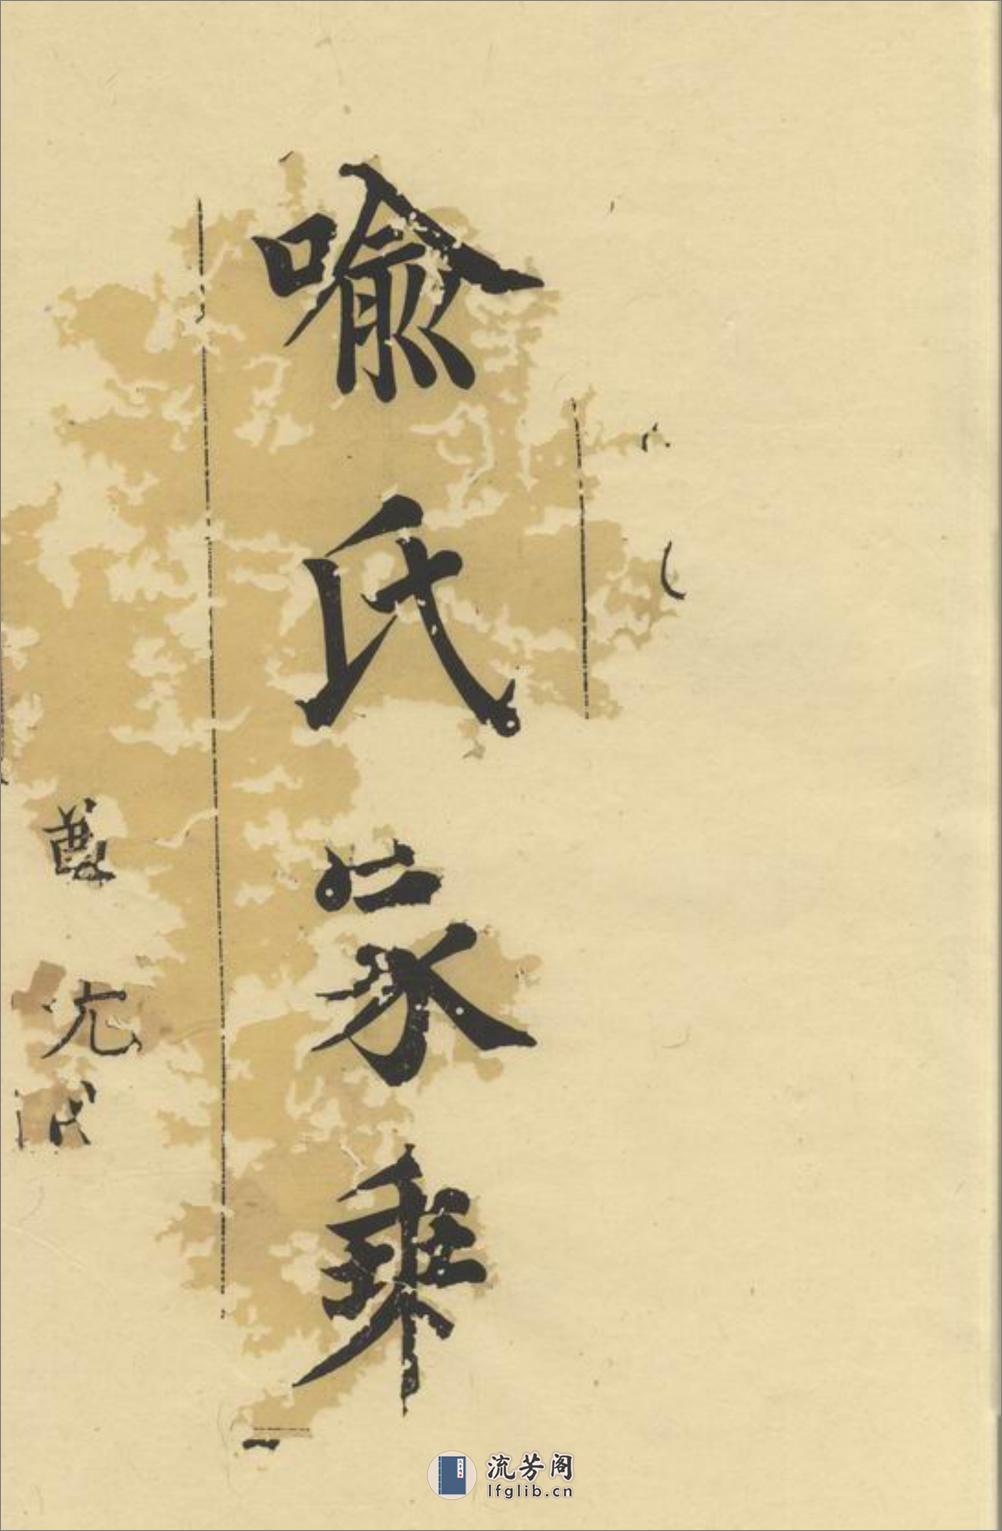 喻氏家乘
流芳阁
lfglib.cn